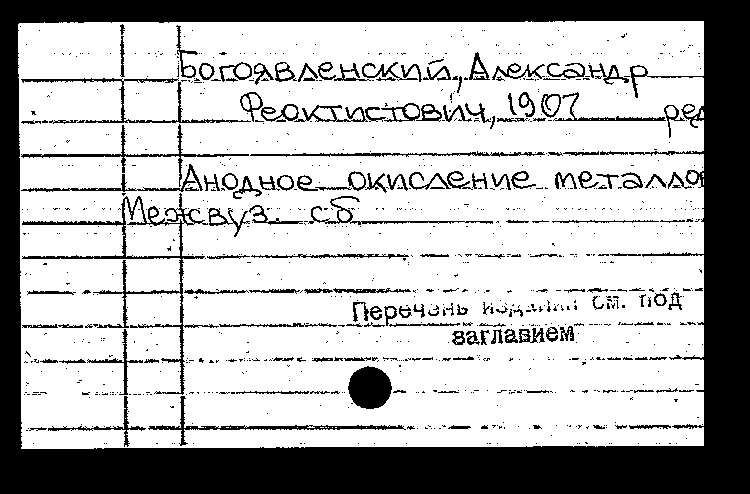 Богоявленский, Александр
Феоктистович, 1907 ред
Анодное окисление металлов
Межвуз. сб
Перечень изданий см. под
заглавием